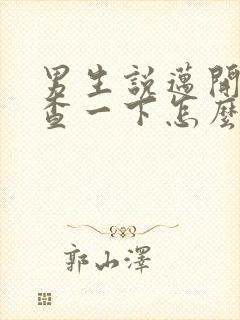 男生說邁開
查一下怎麼
郭山澤